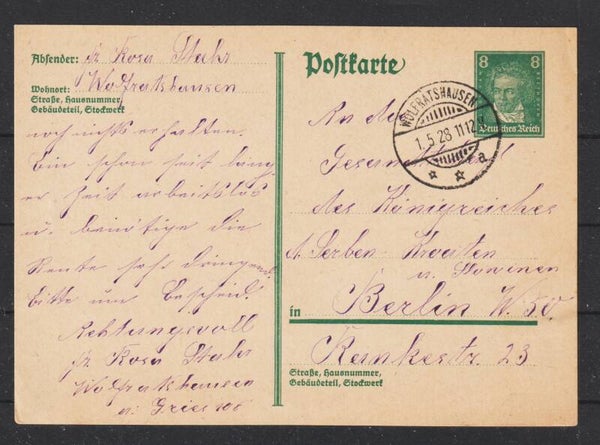 Absender: Fr Rosa Stahr
Wohnort: Wolfratshausen
Straße, Hausnummer,
Gebäudeteil, Stockwerk
noch nichts erhalten.
Bin schon seit lang
er Zeit arbeitslos
u. benötige die
Rente sehr dringend
bitte um Bescheid.
Achtungsvoll
Fr Rosa Stahr
Wolfratshausen
Postkarte
8 8
Deutsches Reich
WOLFRATSHAUSEN
1.5.28 11-12
a
An die
des Königreiches
d. Serben Kroaten
u. Slowenen
in Berlin W. 50.
Rankestr. 23
Straße, Hausnummer,
Gebäudeteil, Stockwerk